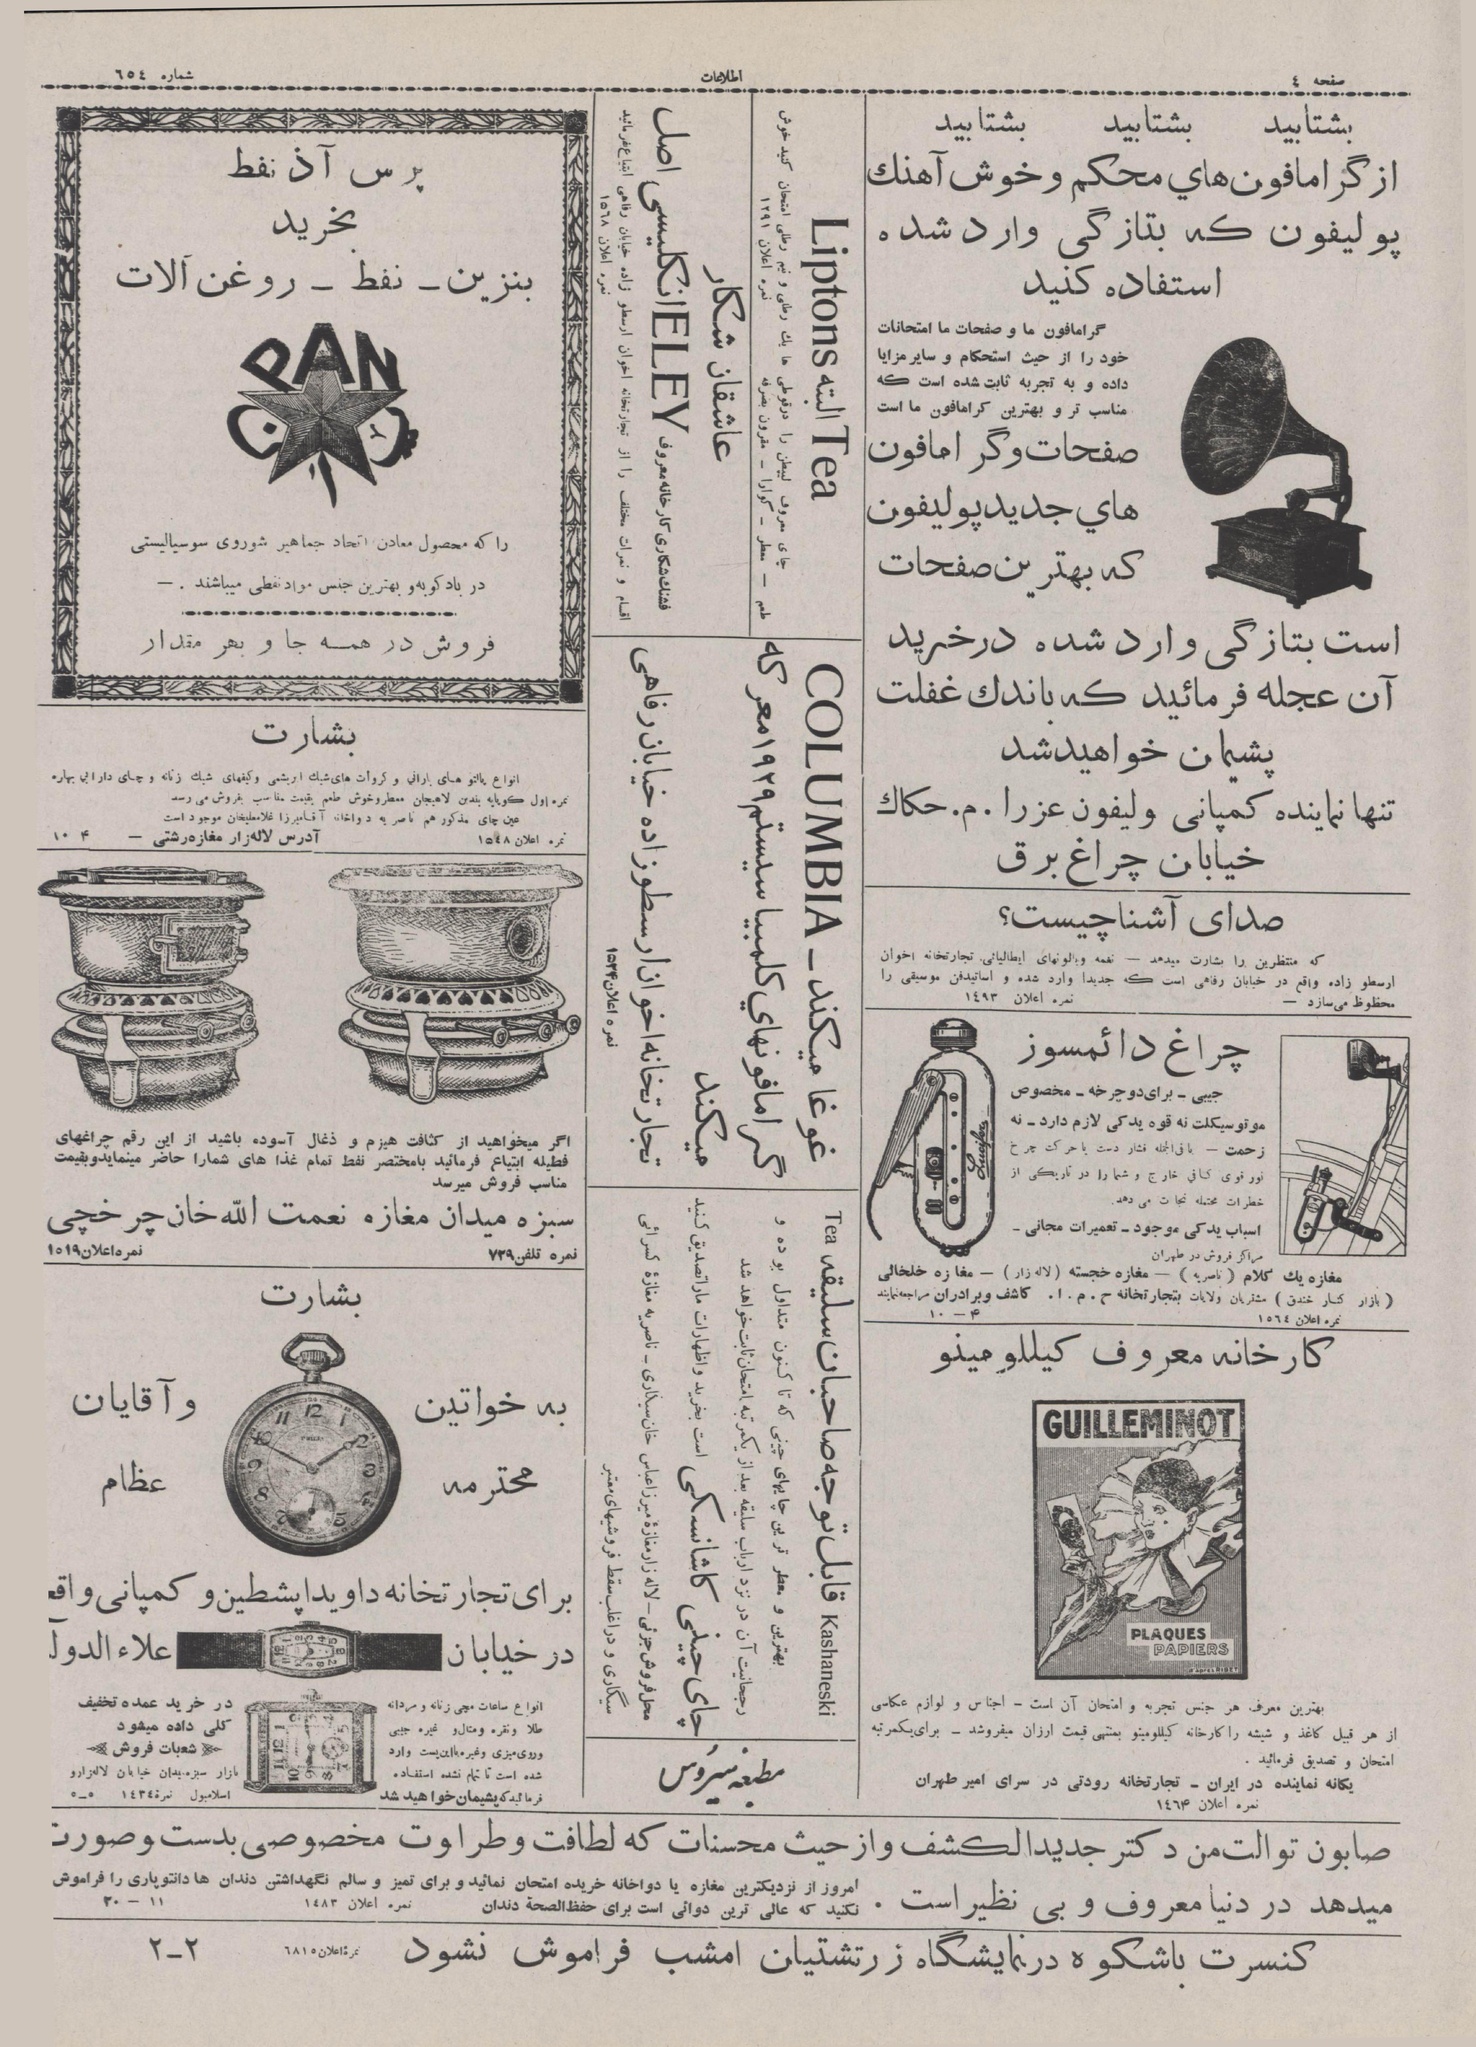 صفحه ٤
اطلاعات
شماره ٦٥٤
بشتابید بشتابید بشتابید
از گرامافون‌هاي محكم وخوش آهنك
پوليفون كه بتازگی وارد شده
استفاده كنيد
گرامافون ما و صفحات ما امتحانات
خود را از حيث استحكام و ساير مزايا
داده و به تجربه ثابت شده است كه
مناسب تر و بهترين كرامافون ما است
صفحات وگرامافون
هاي جديد پوليفون
كه بهترين صفحات
است بتازگی وارد شده درخريد
آن عجله فرمائيد كه باندك غفلت
پشيمان خواهيد شد
تنها نماينده كمپانی وليفون عزرا . م . حكاك
خيابان چراغ برق
صدای آشنا چيست؟
كه منتظرين را بشارت ميدهد — نغمه ويالونهای ايطاليائی تجارتخانه اخوان
ارسطو زاده واقع در خيابان رفاهی است كه جديدا وارد شده و اساتيدفن موسيقی را
محظوظ می‌سازد —
نمره اعلان ١٤٩٣
چراغ دائمسوز
جيبی ـ برای دوچرخه ـ مخصوص
موتوسيكلت نه قوه يدكی لازم دارد ـ نه
زحمت — بافی‌الجمله فشار دست يا حركت چرخ
نور قوی كافی خارج و شما را در تاريكی از
خطرات محتمله نجات می دهد.
اسباب يدكی موجود ـ تعميرات مجانی ـ
مراكز فروش در طهران
مغازه يك كلام ( ناصريه ) — مغازه خجسته ( لاله زار ) — مغازه خلخالی
( بازار كنار خندق ) مشتريان ولايات بتجارتخانه ح . م . ا . كاشف وبرادران مراجعه نمايند
نمره اعلان ١٥٦٤
۴ — ۱۰
كارخانه معروف كيللومينو
GUILLEMINOT
PLAQUES
PAPIERS
بهترين معرف هر جنس تجربه و امتحان آن است — اجناس و لوازم عكاسی
از هر قبيل كاغذ و شيشه را كارخانه كيللومينو بمنتهی قيمت ارزان ميفروشد — برای يكمرتبه
امتحان و تصديق فرمائيد .
يكانه نماينده در ايران ـ تجارتخانه رودتی در سرای امير طهران
نمره اعلان ١٤٦۴
Liptons البته Tea
چای معروف ليبطن را درقوطی ها يك رطلی و نيم رطلی امتحان كنيد خوش
طعم — معطر — گوارا — مقرون بصرفه نمره اعلان ١٢٩١
عاشقان شكار
فشنك شكاری كارخانه معروف ELEY انگليسی اصل
اقسام و نمرات مختلف را از تجارتخانه اخوان ارسطو زاده خيابان رفاهی ابتياع فرمائيد
نمره اعلان ١٥٦٨
COLUMBIA — غوغا ميكند
گرامافونهاي كلمبيا سيستم ١٩٢٩ معركه
ميكند
تجارتخانه اخوان ارسطوزاده خيابان رفاهی
نمره اعلان ١٥٢۴
Kashaneski قابل توجه صاحبان سليقه Tea
بهترين و معطر ترين چايهای چينی كه تا كنون متداول بوده و
رجحانيت آن در نزد ارباب سليقه بعد از يكمرتبه امتحان ثابت خواهد شد
چای چينی كاشانسكی است بخريد و اظهارات ما را تصديق كنيد
محل فروش جزئی — لاله زار مغازهٔ ميرزا عباس خان سيگاری ـ ناصريه مغازهٔ كسرائی
سيگاری و در اغلب سقط فروشيهای معتبر
مطبعه سيروس
پرس آذ نفط
بخريد
بنزين ـ نفط ـ روغن آلات
PAN
را كه محصول معادن اتحاد جماهير شوروی سوسياليستی
در بادكوبه و بهترين جنس مواد نفطی ميباشند . —
فروش در همه جا و بهر مقدار
بشارت
انواع پالتو های بارانی و كروات های شيك ابريشمی وكيفهای شيك زنانه و چای دارائی بهاره
نمره اول كوپايه بندين لاهيجان معطر وخوش طعم بقيمت مناسب بفروش می رسد
عين چای مذكور هم ناصريه دواخانه آقاميرزا غلامعليخان موجود است
نمره اعلان ١٥٤٨
آدرس لاله‌زار مغازه رشتی —
۴ ۱۰
اگر ميخواهيد از كثافت هيزم و ذغال آسوده باشيد از اين رقم چراغهای
فطيله ابتياع فرمائيد بامختصر نفط تمام غذا های شمارا حاضر مينمايدو بقيمت
مناسب فروش ميرسد
سبزه ميدان مغازه نعمت الله خان چرخچی
نمره تلفن ٧٢٩
نمره اعلان ١٥١٩
بشارت
به خواتين
و آقايان
محترمه
عظام
برای تجارتخانه داويد اپشطين و كمپانی واقع
در خيابان
علاء الدوله
انواع ساعات مچی زنانه و مردانه
طلا ونقره ومتالو غيره جيبی
وروی‌ميزی وغيره بااين‌پست وارد
شده است تا تمام نشده استفاده
فرمائيد كه پشيمان خواهيد شد
در خريد عمده تخفيف
كلی داده ميشود
شعبات فروش
بازار سبزه‌ميدان خيابان لاله‌زارو
اسلامبول نمره ١٤٣٤
٥ــ٥
صابون توالت من دكتر جديدالكشف و از حيث محسنات كه لطافت وطراوت مخصوصی بدست وصورت
ميدهد در دنيا معروف و بی نظير است .
امروز از نزديكترين مغازه يا دواخانه خريده امتحان نمائيد و برای تميز و سالم نگهداشتن دندان ها دانتوپاری را فراموش
نكنيد كه عالی ترين دوائی است برای حفظ الصحة دندان
نمره اعلان ١٤٨٣
١١ — ٢٠
كنسرت باشكوه در نمايشگاه زرتشتيان امشب فراموش نشود
نمرهٔ اعلان ٦٨١٥
٢ـ٢